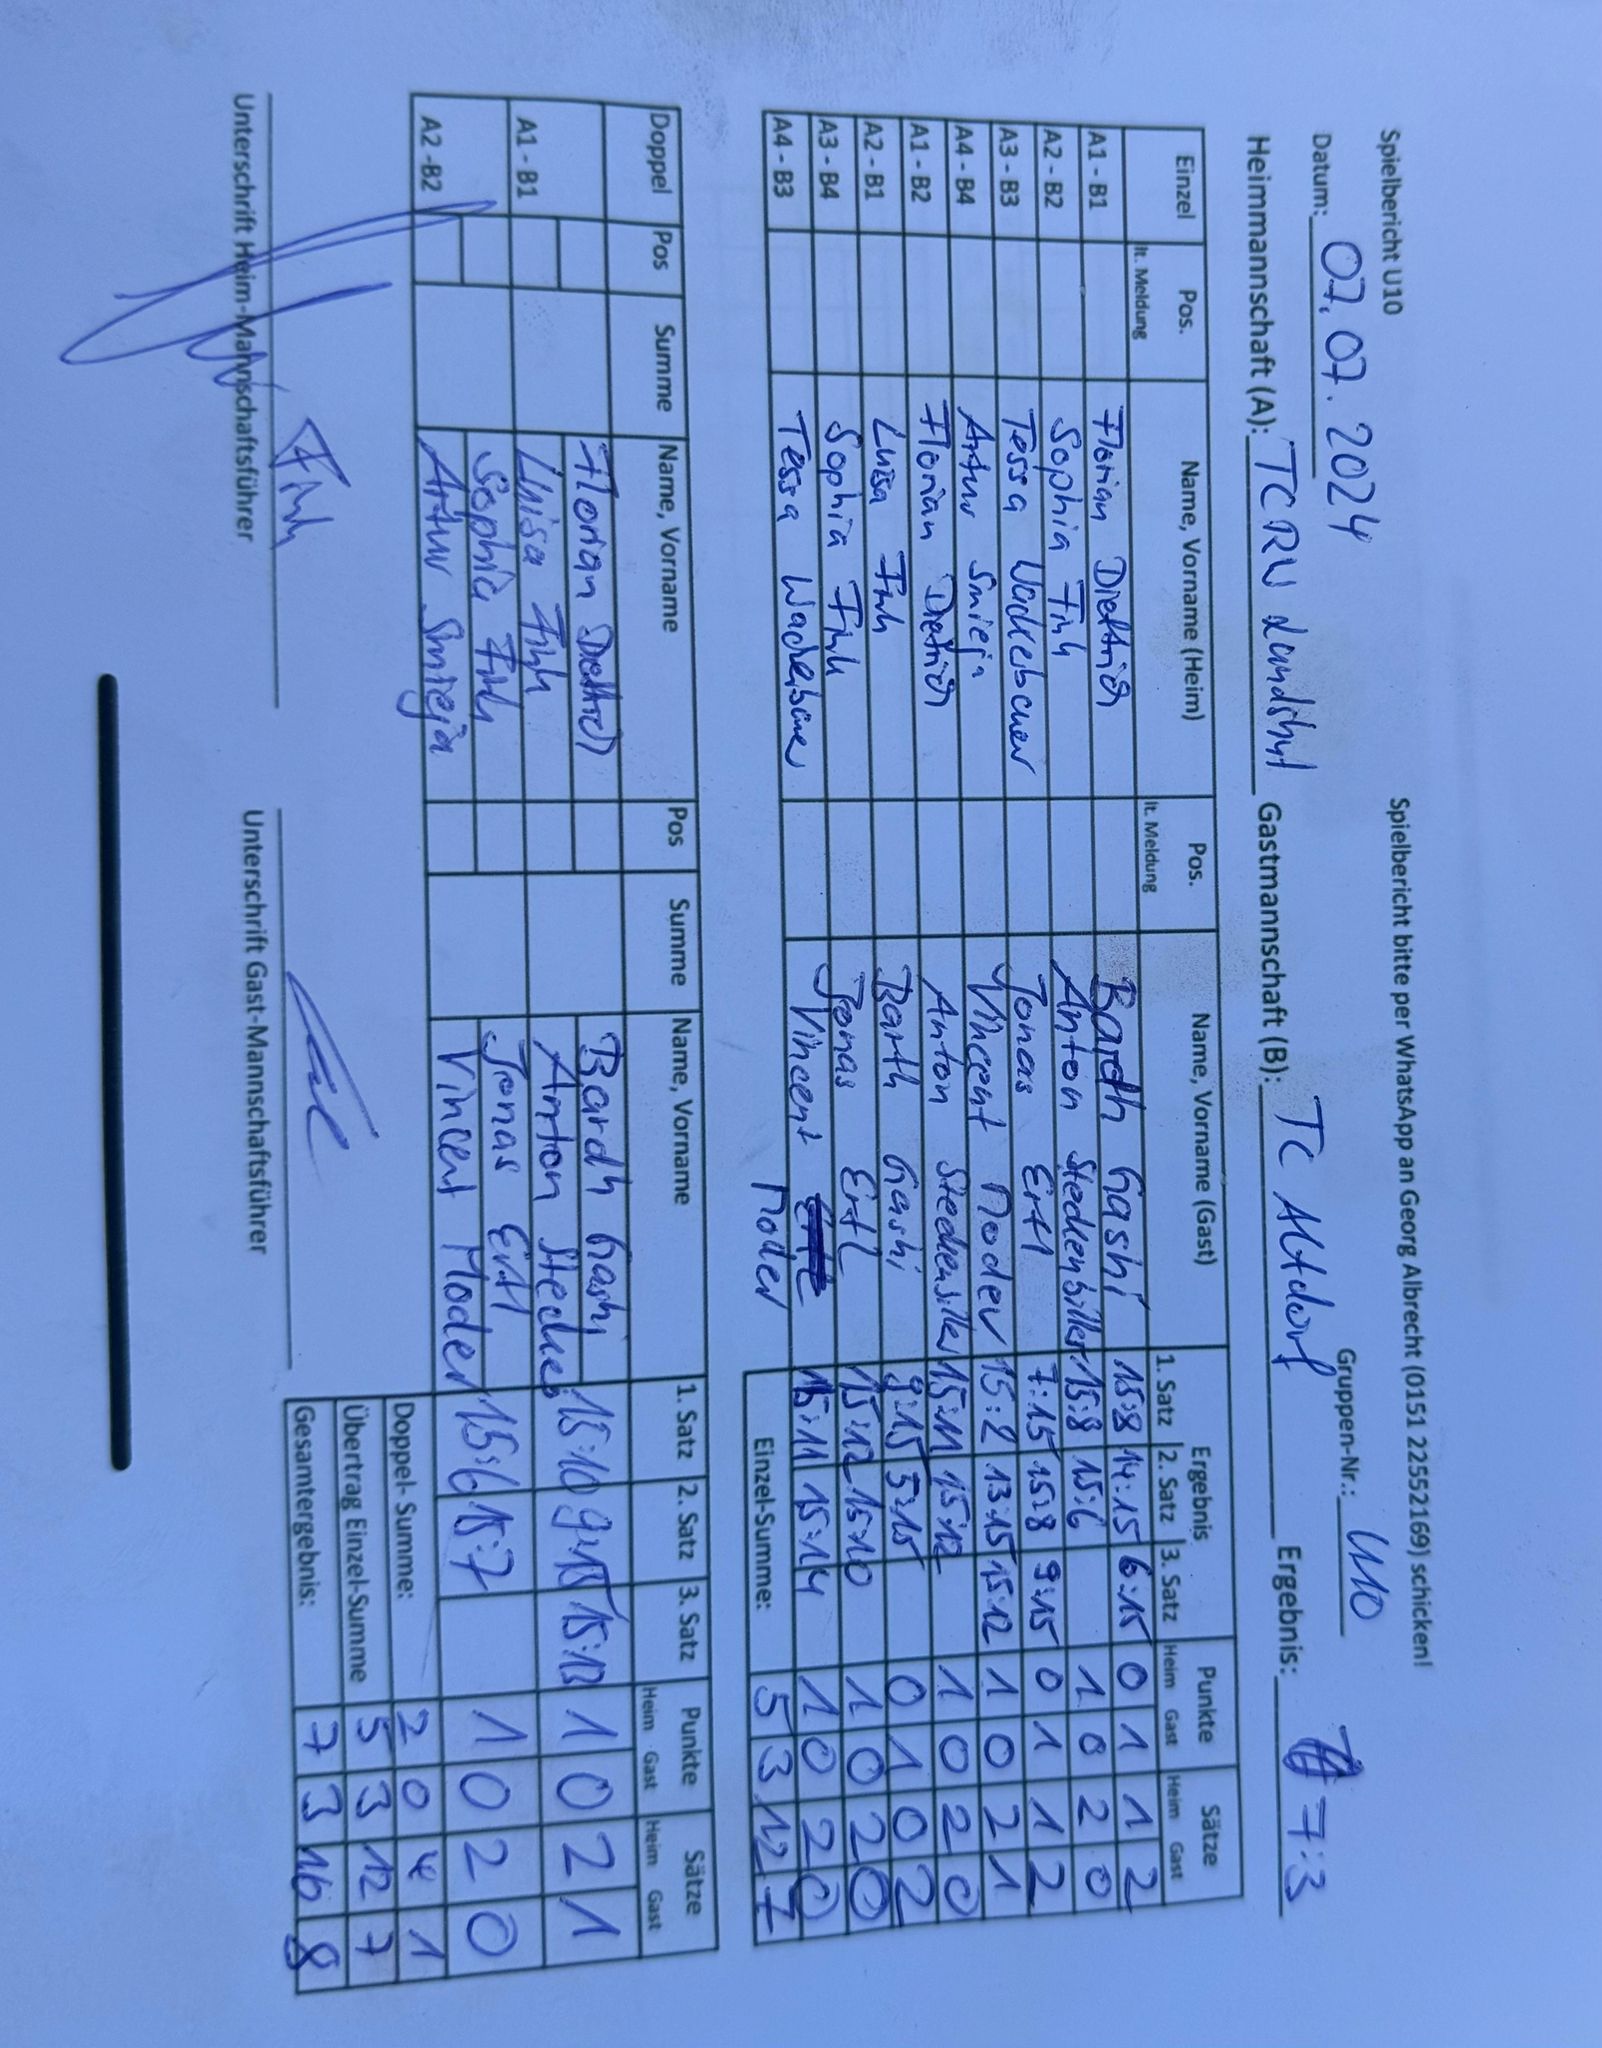 Spielbericht U10 Spielbericht bitte per WhatsApp an Georg Albrecht (0151 22552169) schicken!
Datum: 07.07.2024 Gruppen-Nr.: U10
Heimmannschaft (A): TCRW Landshut Gastmannschaft (B): TC Altdorf Ergebnis: 7:3
Einzel Pos. Name, Vorname (Heim) Pos. Name, Vorname (Gast) Ergebnis Punkte Sätze
lt. Meldung lt. Meldung 1. Satz 2. Satz 3. Satz Heim Gast Heim Gast
A1 - B1 Florian Diettrich Bardh Gashi 15:8 14:15 6:15 0 1 1 2
A2 - B2 Sophia Fink Anton Steckenbiller 15:8 15:6 1 0 2 0
A3 - B3 Tessa Jonas Ertl 7:15 15:8 9:15 0 1 1 2
A4 - B4 Artur Smieja Vincent Moder 15:2 13:15 15:12 1 0 2 1
A1 - B2 Florian Diettrich Anton 15:11 15:12 1 0 2 0
A2 - B1 Luisa Fink Barth Gashi 9:15 5:15 0 1 0 2
A3 - B4 Sophia Fink Jonas Ertl 15:12 15:10 1 0 2 0
A4 - B3 Tessa Vincent Moder 15:11 15:14 1 0 2 0
Einzel-Summe: 5 3 12 7
Doppel Pos Summe Name, Vorname Pos Summe Name, Vorname 1. Satz 2. Satz 3. Satz Punkte Sätze
Heim Gast Heim Gast
Florian Bardh Gashi
A1 - B1 Luisa Fink Anton 15:10 9:15 15:13 1 0 2 1
Sophia Fink Jonas Ertl
A2 -B2 Artur Smieja Vincent Moder 15:6 15:7 1 0 2 0
Doppel- Summe: 2 0 4 1
Übertrag Einzel-Summe 5 3 12 7
Gesamtergebnis: 7 3 16 8
Fink
Unterschrift Heim-Mannschaftsführer Unterschrift Gast-Mannschaftsführer